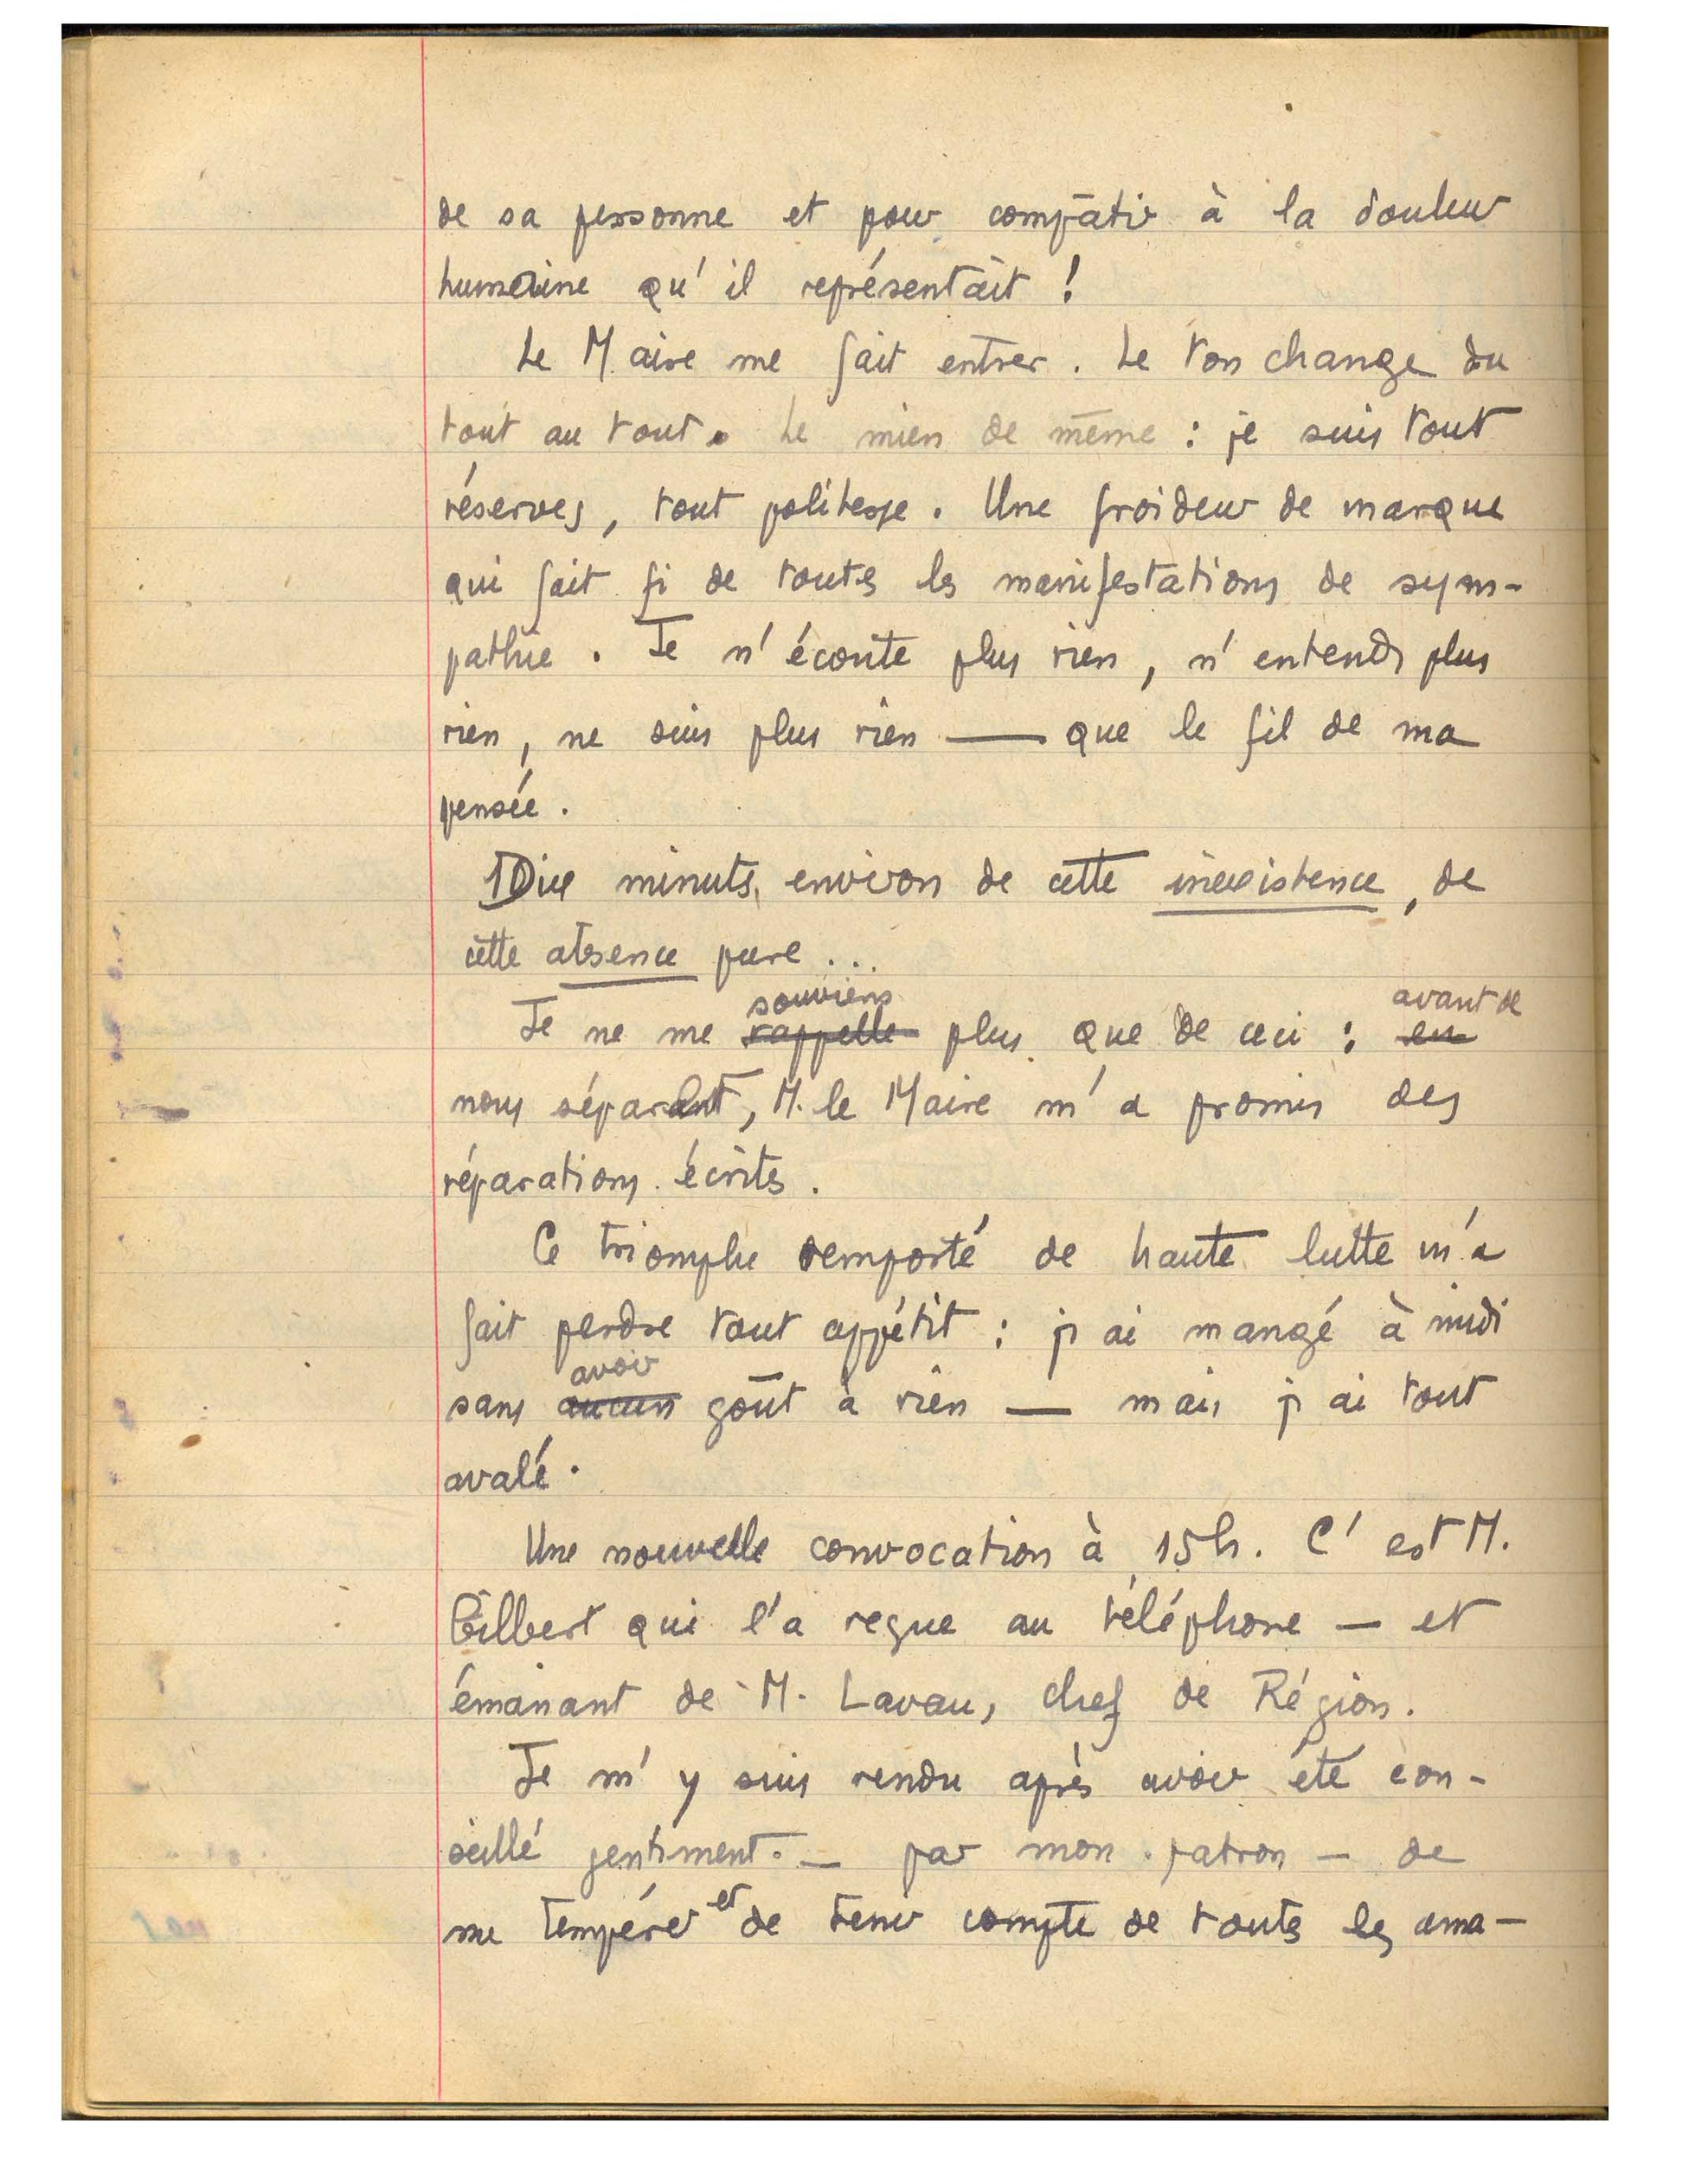 de sa personne et pour compatir à la douleur
humaine qu'il représentait !
Le Maire me fait entrer. Le ton change du
tout au tout. Le mien de même : je suis tout
réserves, tout politesse. Une froideur de marque
qui fait fi de toutes les manifestations de sym-
pathie. Je n'écoute plus rien, n'entends plus
rien, ne suis plus rien — que le fil de ma
pensée.
Dix minutes environ de cette inexistence, de
cette absence pure ...
souviens avant de
Je ne me rappelle plus que de ceci : en
nous séparant, M. le Maire m'a promis des
réparations écrites.
Ce triomphe remporté de haute lutte m'a
fait perdre tout appétit : j'ai mangé à midi
avoir
sans aucun goût à rien — mais j'ai tout
avalé.
Une nouvelle convocation à 15h. C'est M.
Gilbert qui l'a reçue au téléphone — et
émanant de M. Lavau, chef de Région.
Je m'y suis rendu après avoir été con-
seillé gentiment. — par mon patron — de
me tempérer et de tenir compte de toutes les ama-